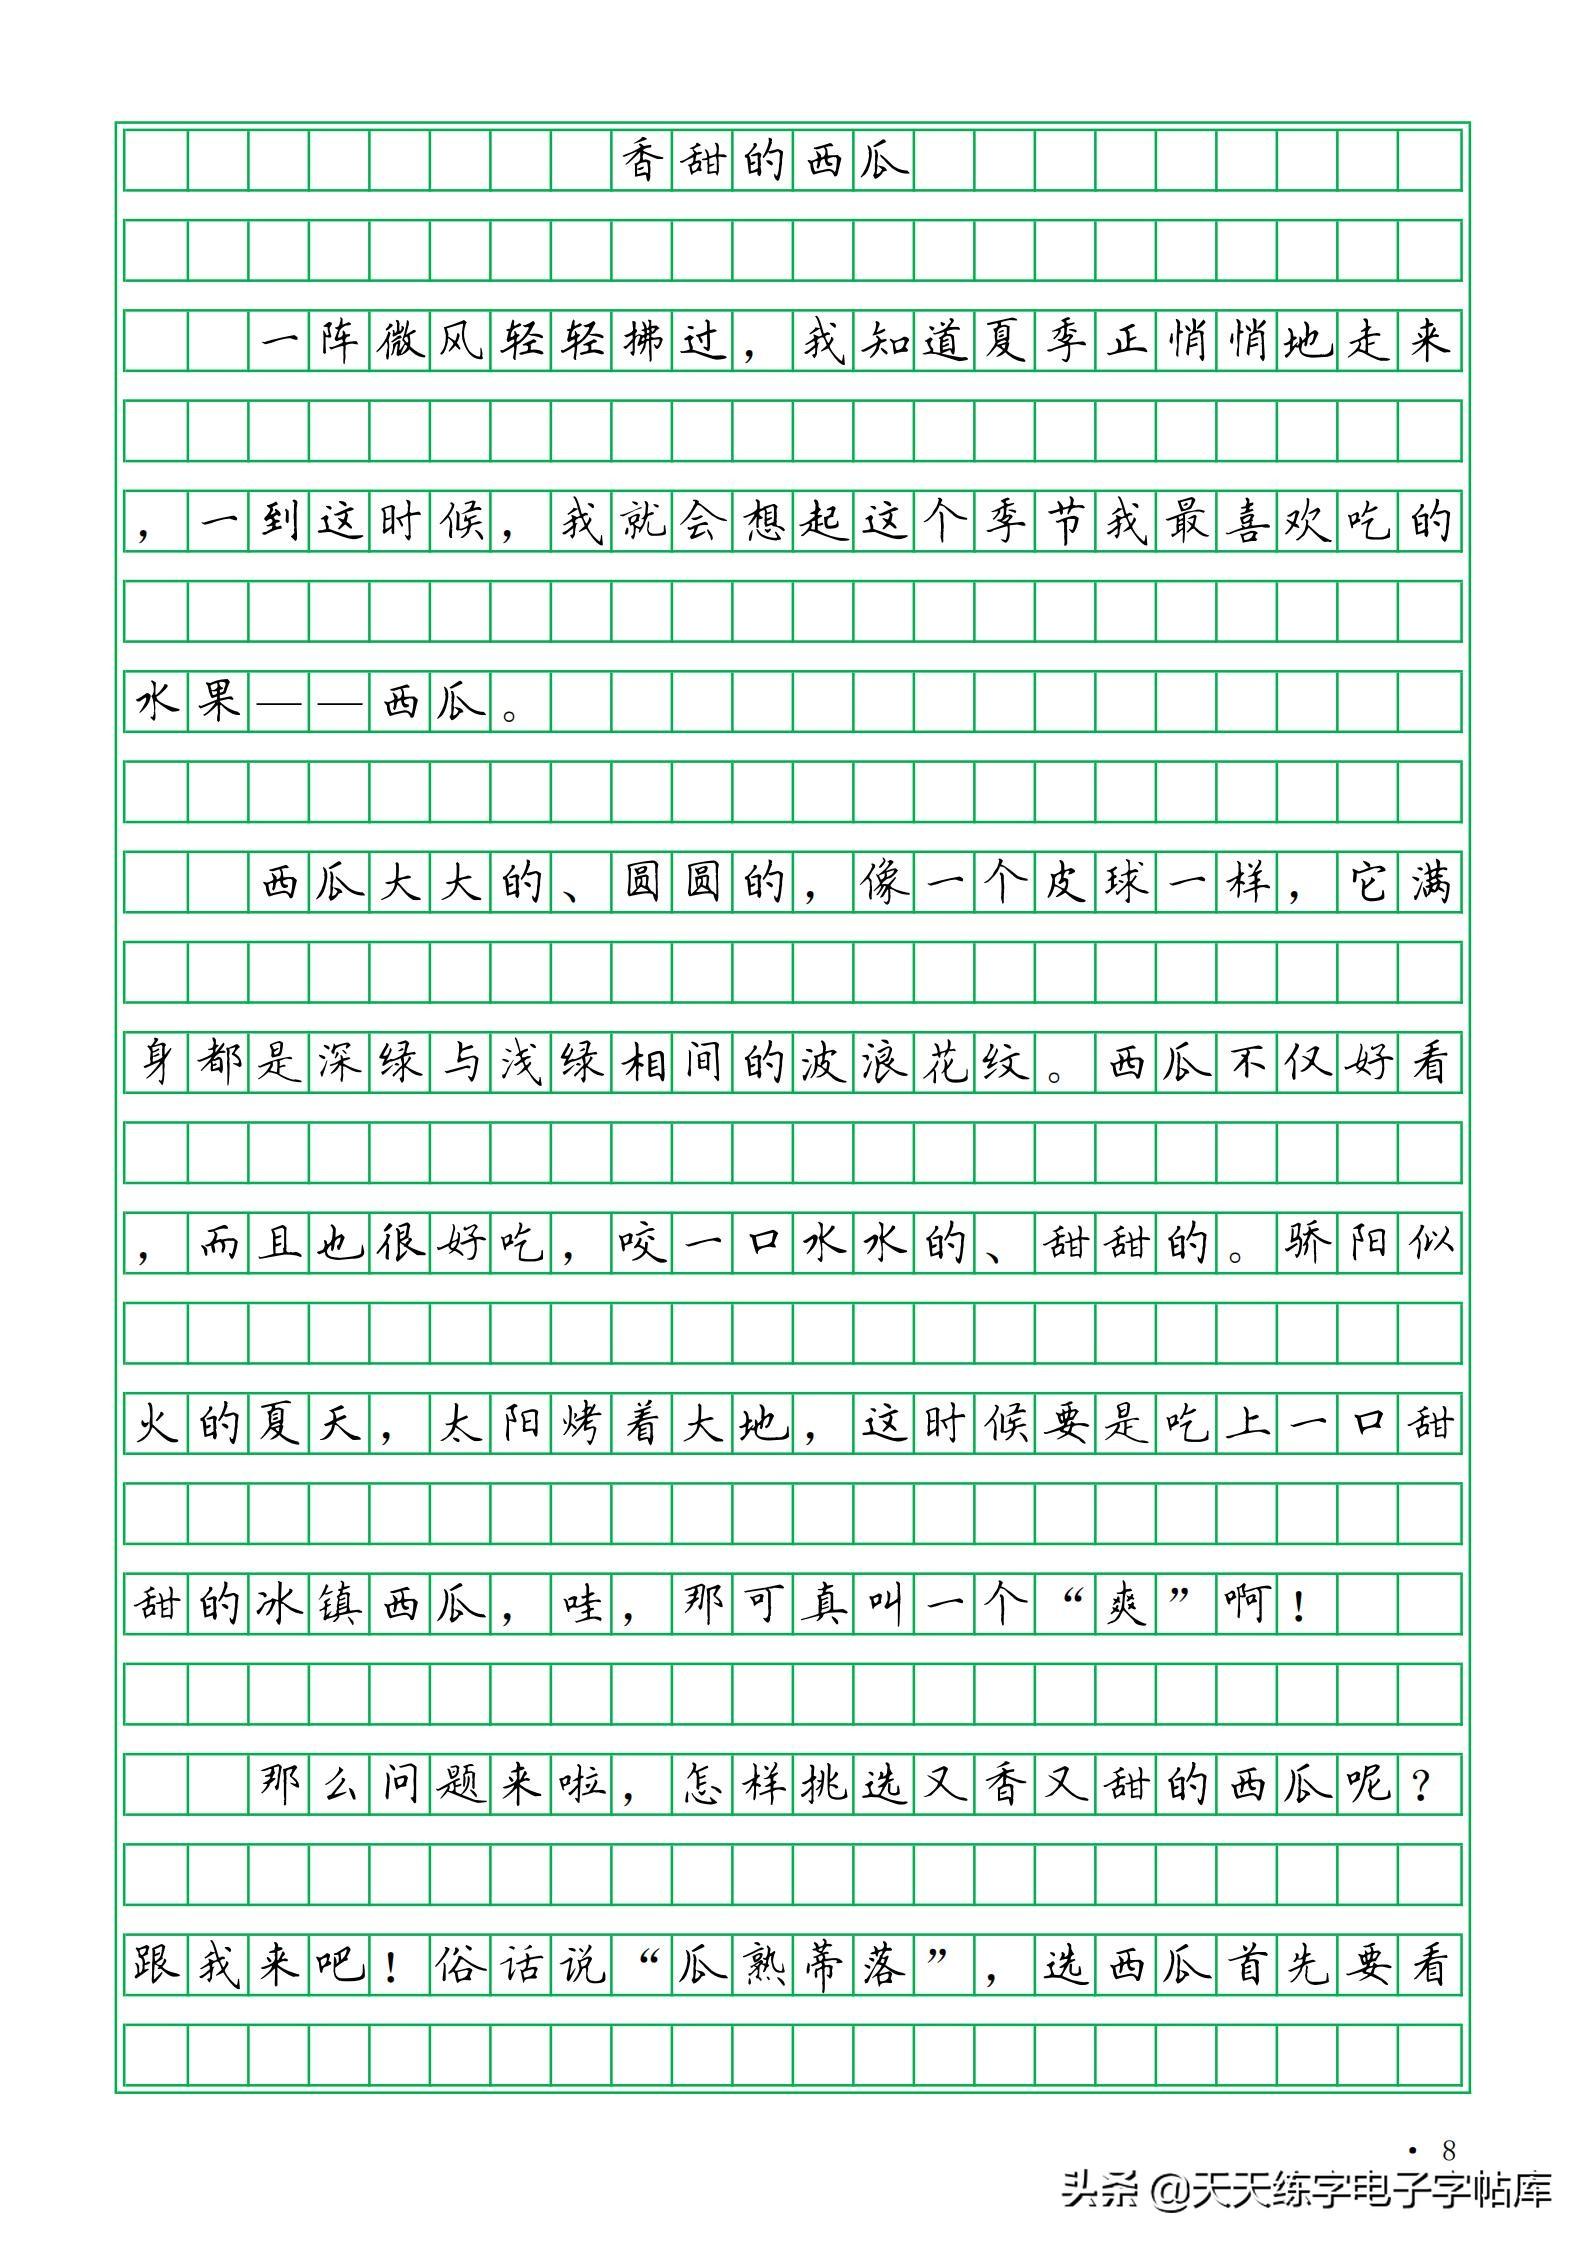 香甜的西瓜
一阵微风轻轻拂过，我知道夏季正悄悄地走来
，一到这时候，我就会想起这个季节我最喜欢吃的
水果——西瓜。
西瓜大大的、圆圆的，像一个皮球一样，它满
身都是深绿与浅绿相间的波浪花纹。西瓜不仅好看
，而且也很好吃，咬一口水水的、甜甜的。骄阳似
火的夏天，太阳烤着大地，这时候要是吃上一口甜
甜的冰镇西瓜，哇，那可真叫一个“爽”啊！
那么问题来啦，怎样挑选又香又甜的西瓜呢？
跟我来吧！俗话说“瓜熟蒂落”，选西瓜首先要看
· 8
头条 @天天练字电子字帖库